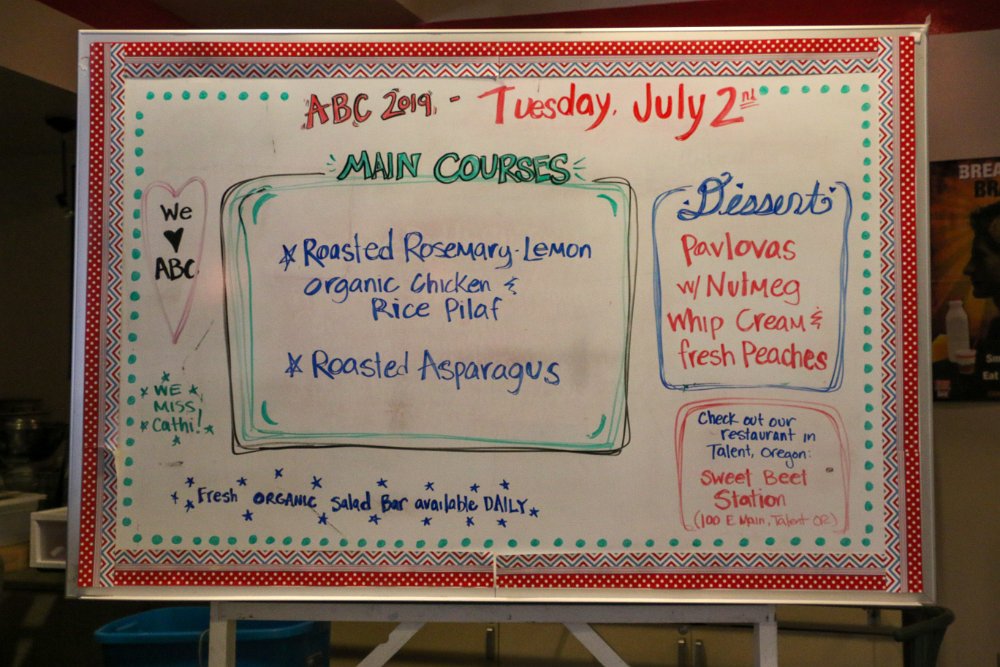 ABC 2019 - Tuesday, July 2nd
MAIN COURSES
Roasted Rosemary-Lemon
organic Chicken &
Rice Pilaf
Roasted Asparagus
Dessert
Pavlovas
w/ Nutmeg
Whip Cream &
fresh Peaches
We
♥
ABC
WE
MISS
Cathi!
Check out our
restaurant in
Talent, Oregon:
Sweet Beet
Station
(100 E Main, Talent OR)
Fresh ORGANIC Salad Bar available DAILY
BREA
BR
Eat